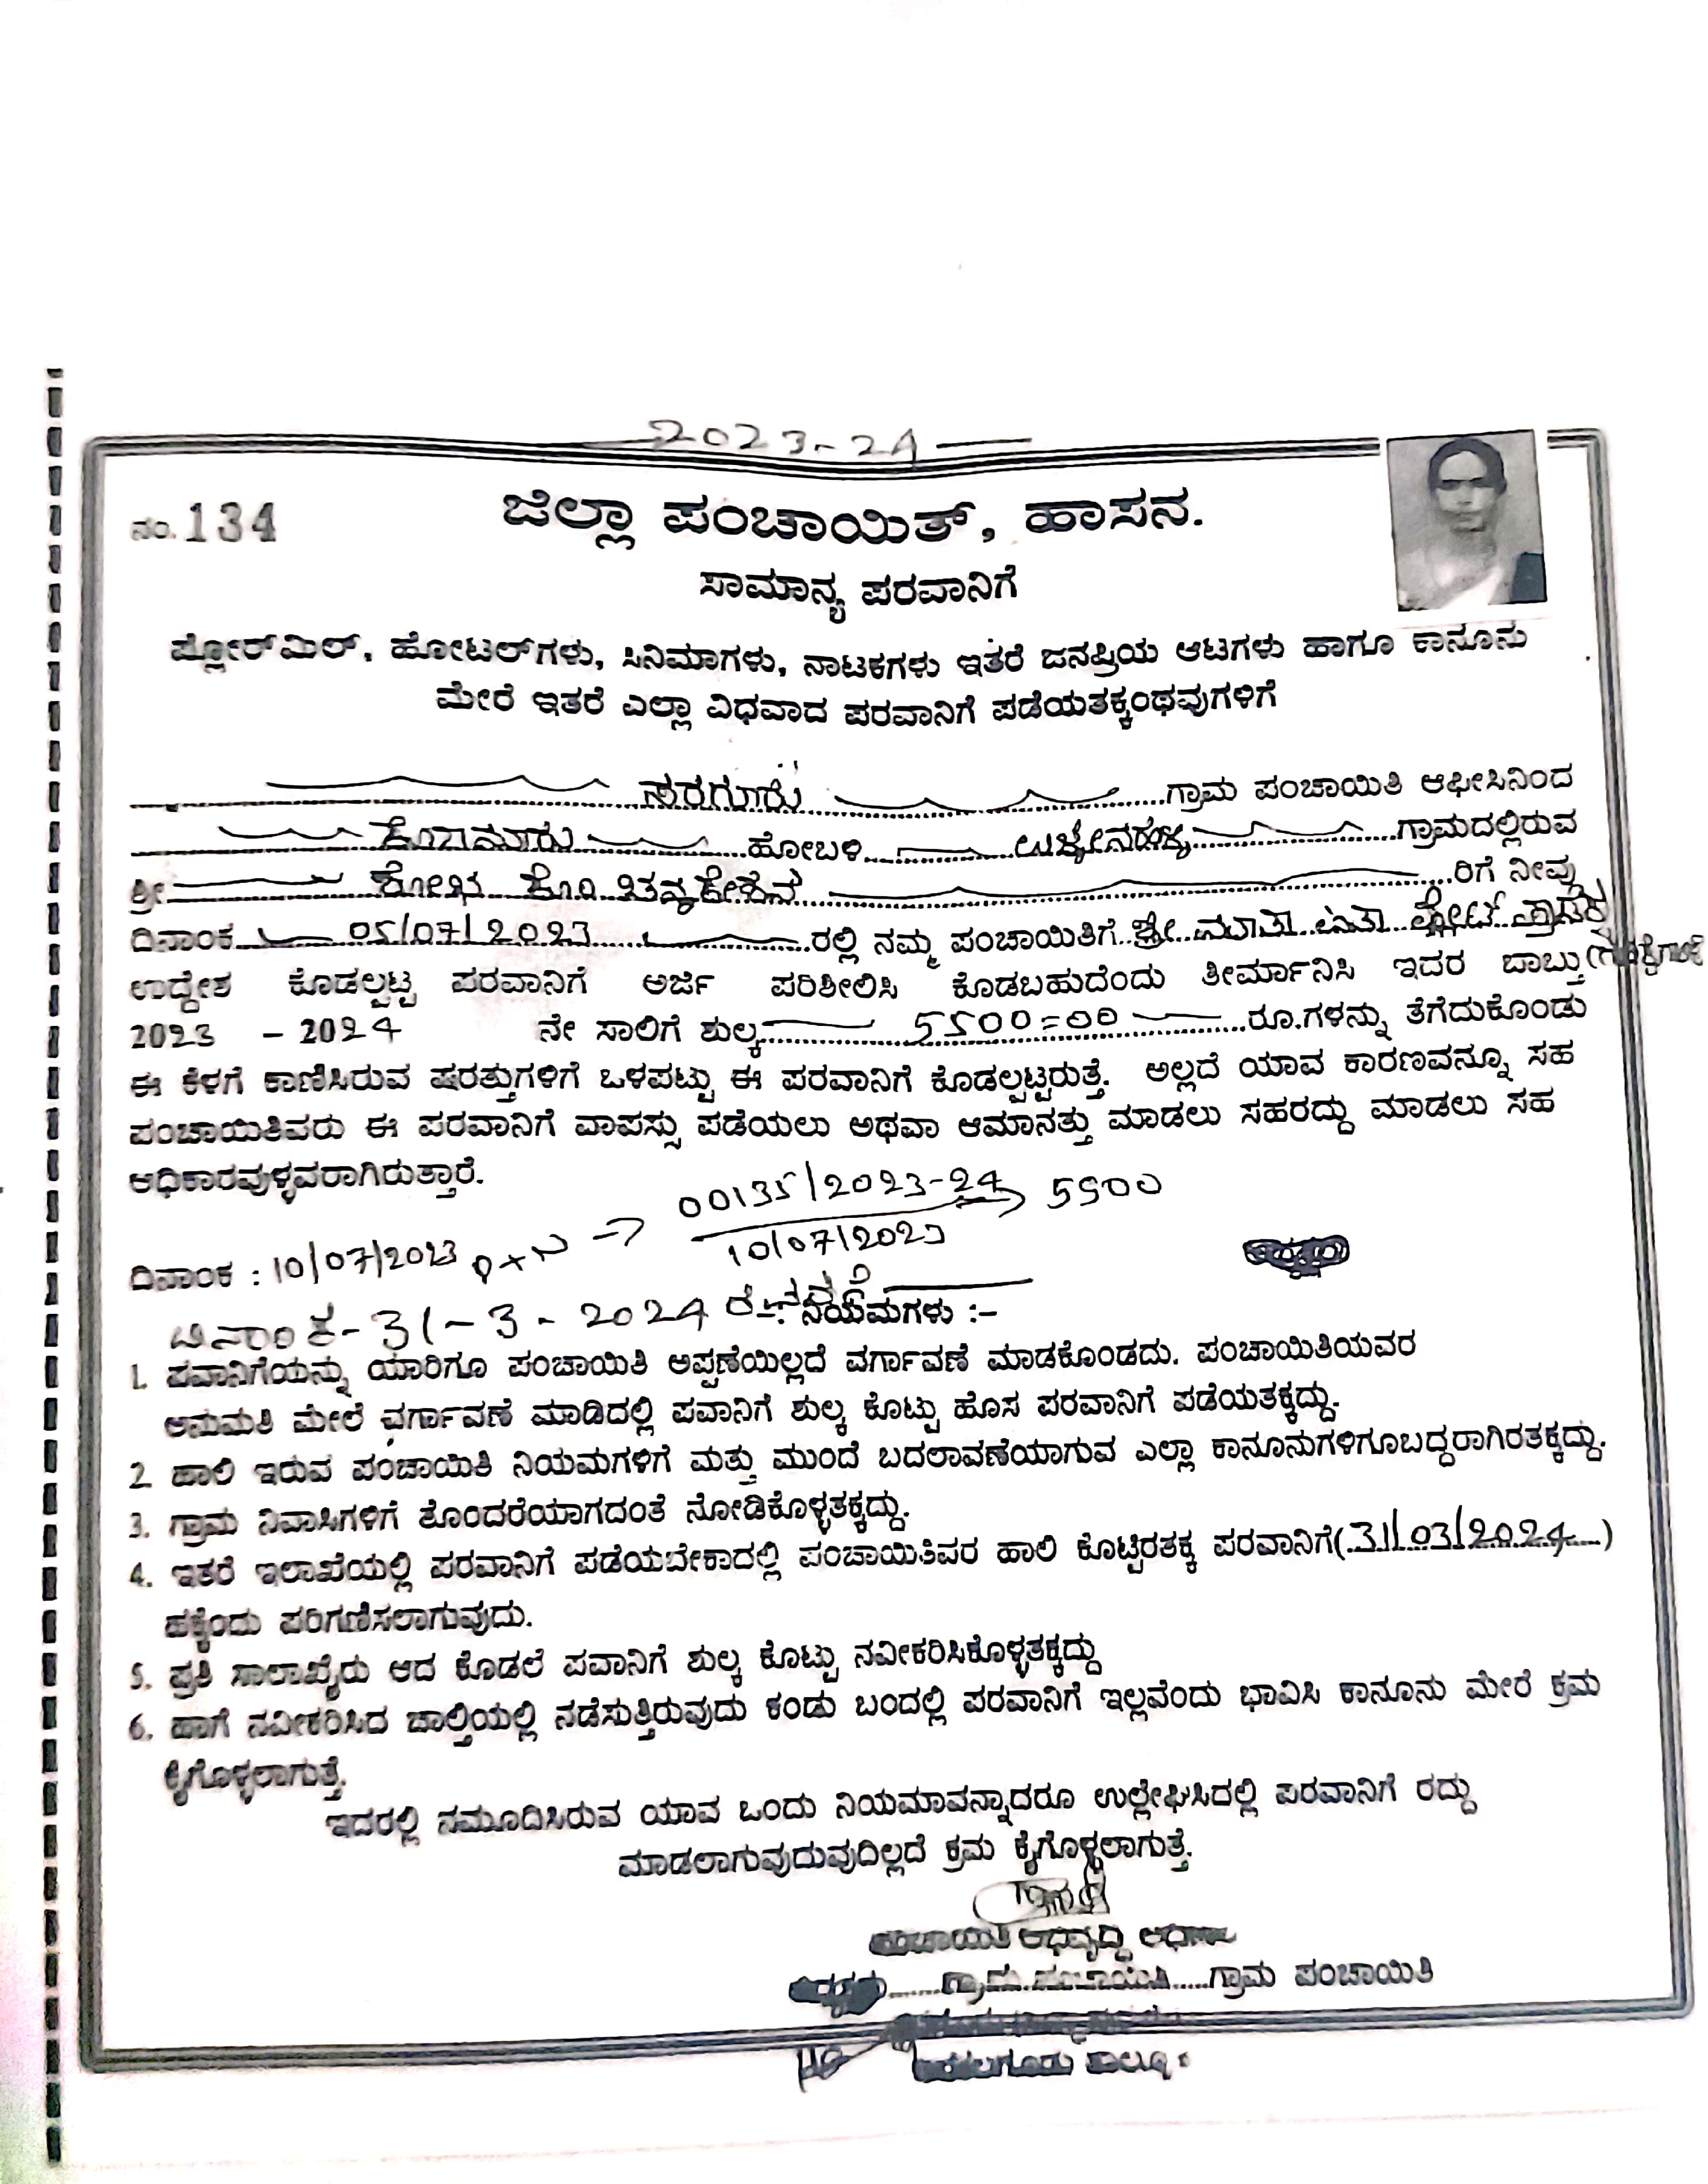 2023-24
ನಂ. 134
ಜಿಲ್ಲಾ ಪಂಚಾಯಿತ್, ಹಾಸನ.
ಸಾಮಾನ್ಯ ಪರವಾನಿಗೆ
ಪ್ಲೋರ್‌ಮಿಲ್, ಹೋಟಲ್‌ಗಳು, ಸಿನಿಮಾಗಳು, ನಾಟಕಗಳು ಇತರೆ ಜನಪ್ರಿಯ ಆಟಗಳು ಹಾಗೂ ಕಾನೂನು
ಮೇರೆ ಇತರೆ ಎಲ್ಲಾ ವಿಧವಾದ ಪರವಾನಿಗೆ ಪಡೆಯತಕ್ಕಂಥವುಗಳಿಗೆ
ಗ್ರಾಮ ಪಂಚಾಯಿತಿ ಆಫೀಸಿನಿಂದ
ಹೋಬಳಿ ಗ್ರಾಮದಲ್ಲಿರುವ
ಶ್ರೀ ರಿಗೆ ನೀವು
ದಿನಾಂಕ 05/07/2023 ರಲ್ಲಿ ನಮ್ಮ ಪಂಚಾಯಿತಿಗೆ ಶ್ರೀ ಮಾತಾ
ಉದ್ದೇಶ ಕೊಡಲ್ಪಟ್ಟ ಪರವಾನಿಗೆ ಅರ್ಜಿ ಪರಿಶೀಲಿಸಿ ಕೊಡಬಹುದೆಂದು ತೀರ್ಮಾನಿಸಿ ಇದರ ಬಾಬ್ತು
2023 - 2024 ನೇ ಸಾಲಿಗೆ ಶುಲ್ಕ 5500=00 ರೂ.ಗಳನ್ನು ತೆಗೆದುಕೊಂಡು
ಈ ಕೆಳಗೆ ಕಾಣಿಸಿರುವ ಷರತ್ತುಗಳಿಗೆ ಒಳಪಟ್ಟು ಈ ಪರವಾನಿಗೆ ಕೊಡಲ್ಪಟ್ಟಿರುತ್ತೆ. ಅಲ್ಲದೆ ಯಾವ ಕಾರಣವನ್ನೂ ಸಹ
ಪಂಚಾಯಿತಿವರು ಈ ಪರವಾನಿಗೆ ವಾಪಸ್ಸು ಪಡೆಯಲು ಅಥವಾ ಆಮಾನತ್ತು ಮಾಡಲು ಸಹರದ್ದು ಮಾಡಲು ಸಹ
ಅಧಿಕಾರವುಳ್ಳವರಾಗಿರುತ್ತಾರೆ.
00135/2023-24 5500
ದಿನಾಂಕ : 10/07/2023 10/07/2023
ದಿನಾಂಕ-31-3-2024
ನಿಯಮಗಳು :-
1. ಪವಾನಿಗೆಯನ್ನು ಯಾರಿಗೂ ಪಂಚಾಯಿತಿ ಅಪ್ಪಣೆಯಿಲ್ಲದೆ ವರ್ಗಾವಣೆ ಮಾಡಕೊಂಡದು. ಪಂಚಾಯಿತಿಯವರ
ಅನುಮತಿ ಮೇಲೆ ವರ್ಗಾವಣೆ ಮಾಡಿದಲ್ಲಿ ಪವಾನಿಗೆ ಶುಲ್ಕ ಕೊಟ್ಟು ಹೊಸ ಪರವಾನಿಗೆ ಪಡೆಯತಕ್ಕದ್ದು.
2. ಹಾಲಿ ಇರುವ ಪಂಚಾಯಿತಿ ನಿಯಮಗಳಿಗೆ ಮತ್ತು ಮುಂದೆ ಬದಲಾವಣೆಯಾಗುವ ಎಲ್ಲಾ ಕಾನೂನುಗಳಿಗೂಬದ್ದರಾಗಿರತಕ್ಕದ್ದು.
3. ಗ್ರಾಮ ನಿವಾಸಿಗಳಿಗೆ ತೊಂದರೆಯಾಗದಂತೆ ನೋಡಿಕೊಳ್ಳತಕ್ಕದ್ದು.
4. ಇತರೆ ಇಲಾಖೆಯಲ್ಲಿ ಪರವಾನಿಗೆ ಪಡೆಯಬೇಕಾದಲ್ಲಿ ಪಂಚಾಯಿತಿವರ ಹಾಲಿ ಕೊಟ್ಟಿರತಕ್ಕ ಪರವಾನಿಗೆ(31/03/2024)
ಹಕ್ಕೆಂದು ಪರಿಗಣಿಸಲಾಗುವುದು.
5. ಪ್ರತಿ ಸಾಲಾಖೈರು ಆದ ಕೊಡಲೆ ಪವಾನಿಗೆ ಶುಲ್ಕ ಕೊಟ್ಟು ನವೀಕರಿಸಿಕೊಳ್ಳತಕ್ಕದ್ದು
6. ಹಾಗೆ ನವೀಕರಿಸಿದ ಚಾಲ್ತಿಯಲ್ಲಿ ನಡೆಸುತ್ತಿರುವುದು ಕಂಡು ಬಂದಲ್ಲಿ ಪರವಾನಿಗೆ ಇಲ್ಲವೆಂದು ಭಾವಿಸಿ ಕಾನೂನು ಮೇರೆ ಕ್ರಮ
ಕೈಗೊಳ್ಳಲಾಗುತ್ತೆ.
ಇದರಲ್ಲಿ ನಮೂದಿಸಿರುವ ಯಾವ ಒಂದು ನಿಯಮಾವನ್ನಾದರೂ ಉಲ್ಲೇಘಿಸಿದಲ್ಲಿ ಪರವಾನಿಗೆ ರದ್ದು
ಮಾಡಲಾಗುವುದುವುದಿಲ್ಲದೆ ಕ್ರಮ ಕೈಗೊಳ್ಳಲಾಗುತ್ತೆ.
ಗ್ರಾಮ ಪಂಚಾಯಿತಿ ಗ್ರಾಮ ಪಂಚಾಯಿತಿ